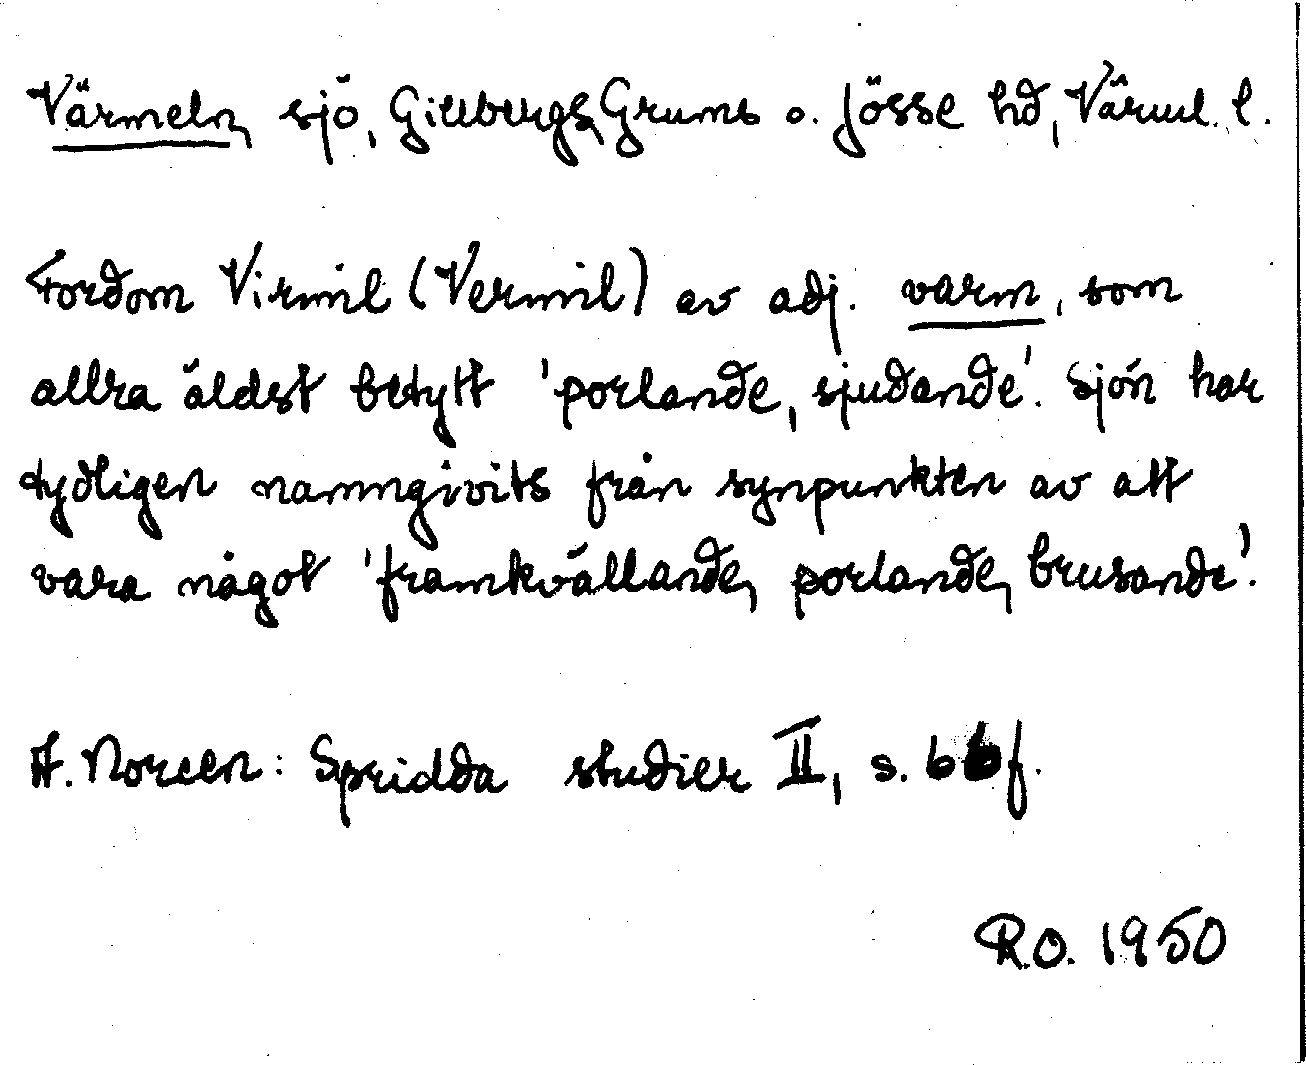 Värmeln, sjö, Gillbergs, Grums o. Jösse hd, Värml. l.
Fordom Virmil (Vermil) av adj. varm, som
allra äldst betytt 'porlande, sjudande'. Sjön har
tydligen namngivits från synpunkten av att
vara något 'framkvällande, porlande, brusande'.
A. Noreen: Spridda studier II, s. 66 f.
R.O. 1950